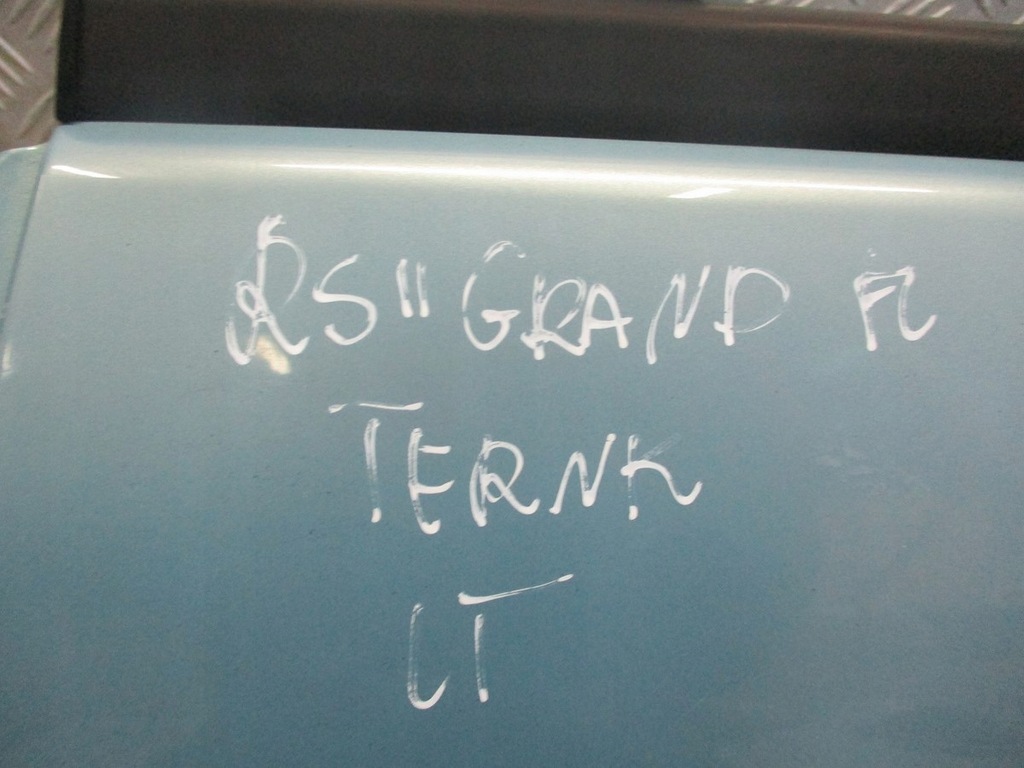 RS" GRAND FL
TERNK
LT